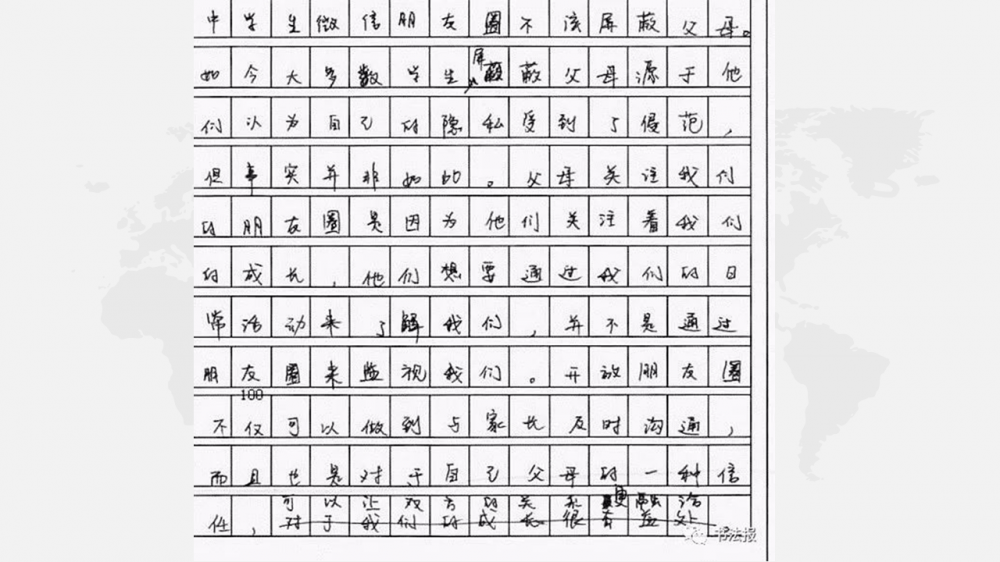 中学生微信朋友圈不该屏蔽父母。
屏
如今大多数学生蔽父母源于他
们认为自己的隐私受到了侵范，
但事实并非如此。父母关注我们
的朋友圈是因为他们关注着我们
的成长，他们想要通过我们的日
常活动来了解我们，并不是通过
朋友圈来监视我们。开放朋友圈
100
不仅可以做到与家长及时沟通，
而且也是对于自己父母的一种信
可以让双方的关系更融洽
任，对于我们的成长很有益处
书法报